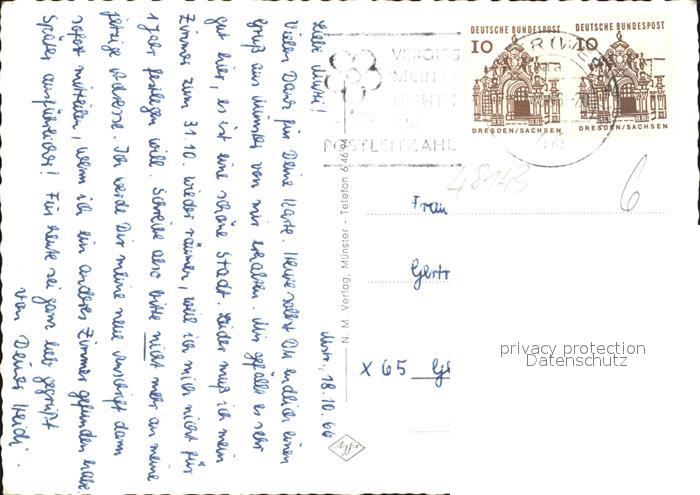 Mstr., 18.10.66
Liebe Mutti!
Vielen Dank für Deine Karte. Heute sollst Du endlich einen
Gruß aus Münster von mir erhalten. Mir gefällt es sehr
gut hier, es ist eine schöne Stadt. Leider muß ich mein
Zimmer zum 31.10. wieder räumen, weil ich mich nicht für
1 Jahr festlegen will. Schreibe also bitte nicht mehr an meine
jetzige Adresse. Ich werde Dir meine neue Anschrift dann
sofort mitteilen, wenn ich ein anderes Zimmer gefunden habe.
Später ausführlicher! Für heute sei ganz lieb gegrüßt
von Deiner Heidi.
N. M. Verlag, Münster - Telefon 64694
VERGISS
MEIN
NICHT
DIE
POSTLEITZAHL
DEUTSCHE BUNDESPOST
10
DRESDEN/SACHSEN
DEUTSCHE BUNDESPOST
10
DRESDEN/SACHSEN
48143
6
Frau
Gertr
X 65 Ge
privacy protection
Datenschutz